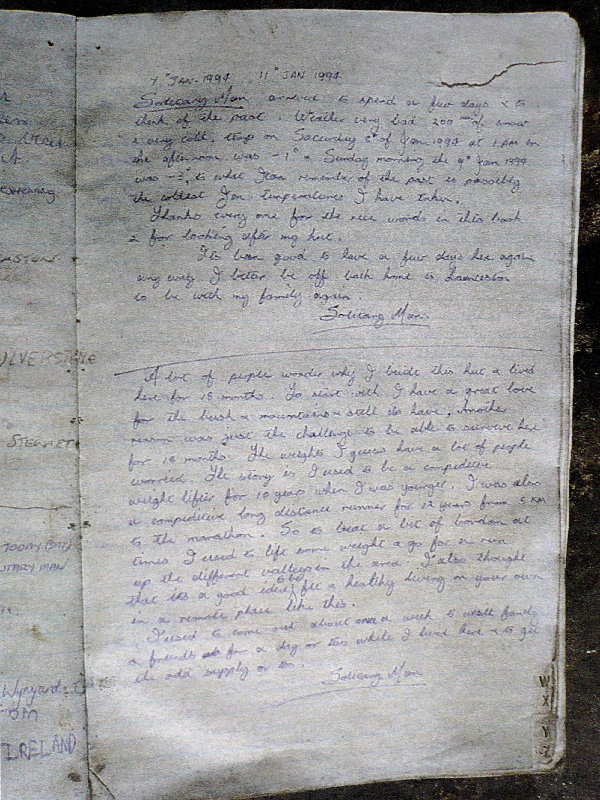 7th JAN-1994 11th JAN 1994
Solitary Man arrived to spend a few days & to
think of the past. Weather very bad 200 mm of snow
& very cold, temp on Saturday 8th of Jan 1994 at 1 pm in
the afternoon was -1° & Sunday morning the 9th Jan 1994
was -3°, to what I can remember of the past is possibly
the coldest Jan temperatures I have taken.
Thanks every one for the nice words in this book
& for looking after my hut.
Its been good to have a few days here again
any way I better be off back home to
to be with my family again.
Solitary Man.
A lot of people wonder why I build this hut & lived
here for 18 months. To start with I have a great love
for the bush & mountains & still do have. Another
reason was just the challenge to be able to survive here
for 18 months. The weights I guess have a lot of people
worried. The story is I used to be a competitive
weight lifter for 10 years when I was younger. I was also
a competitive long distance runner for 12 years from 5 km
to the marathon. So to beat a bit of bordom at
times I used to lift some weight & go for a run
up the different valleys in the area. I also thought
that its a good idea to be fit & healthy living on your own
in a remote place like this.
I used to come out about once a week to visit family
& friends for a day or two while I lived here & to get
the odd supply or so.
Solitary Man
SILVERSTONE
STEWART
TODAY (BIT)
TARY MAN
Wynyard
IRELAND
W
X
Y
Z